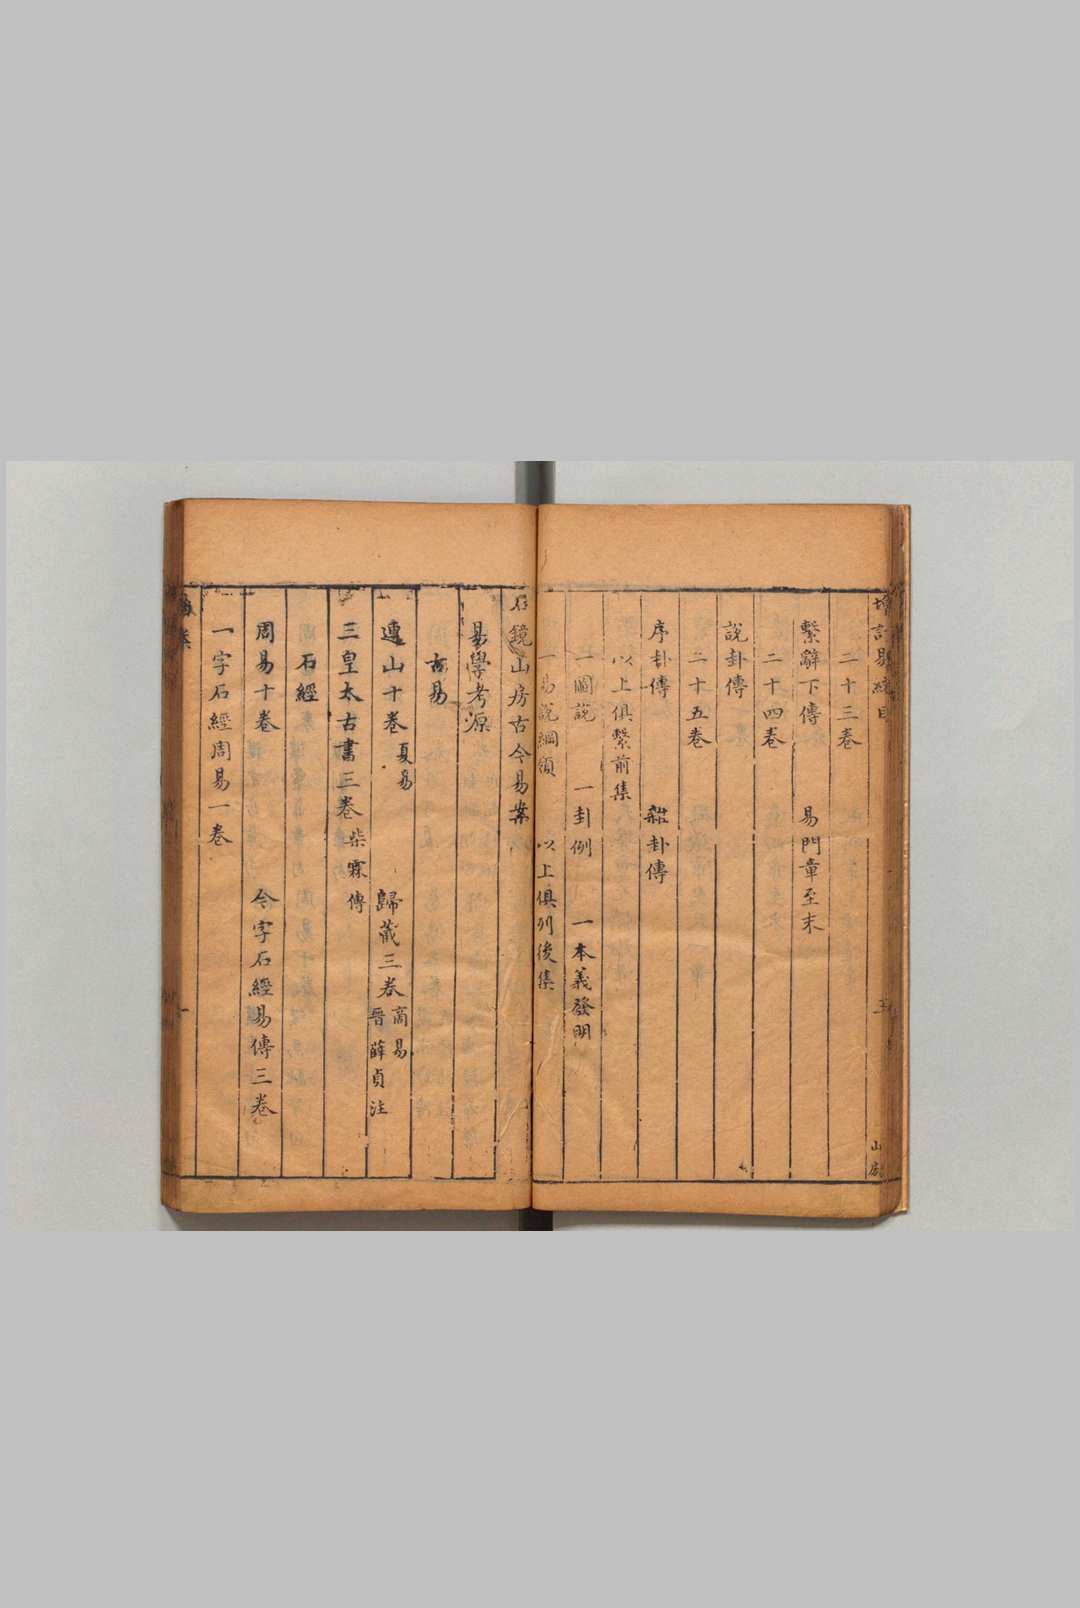 增訂易統目
二十三卷
繫辭下傳　易門章至末
二十四卷
說卦傳
二十五卷
序卦傳　雜卦傳
以上俱繫前集
一圖說　一卦例　一本義發明
一易說綱領　以上俱列後集
三
山房
石鏡山房古今易案
易學考源
古易
連山十卷 夏易　歸藏三卷 商易 晉薛貞注
三皇太古書三卷 柴霖傳
石經
周易十卷　今字石經易傳三卷
一字石經周易一卷
一